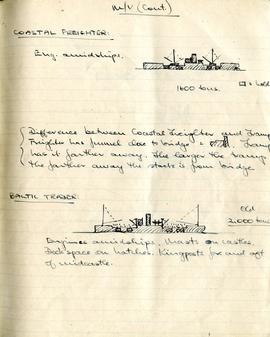 M/V (Cont.)
COASTAL FREIGHTER:
Eng. amidships.
1600 tons.
= hold
Difference between Coastal Freighter and Tramp
Freighter has funnel close to bridge =
has it farther away. The larger the tramp
the farther away the stack is from bridge
BALTIC TRADER:
2,000 tons
Engines amidships. Masts on castles.
Deckspace on hatches. Kingposts for and aft
of midcastle.